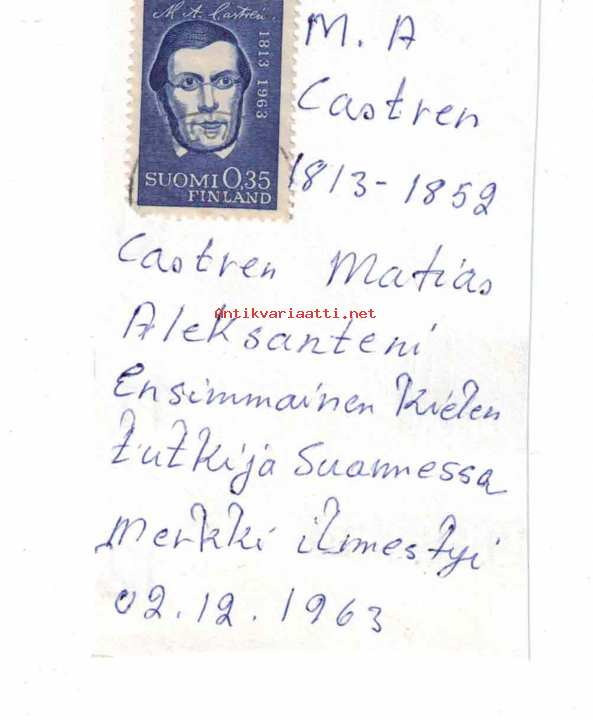 M. A. Castrén.
1813 1963
SUOMI 0,35
FINLAND
M. A
Castren
1813-1852
Castren Matias
Antikvariaatti.net
Aleksanteni
Ensimmainen kielen
tutkija Suomessa
Merkki ilmestyi
02.12.1963